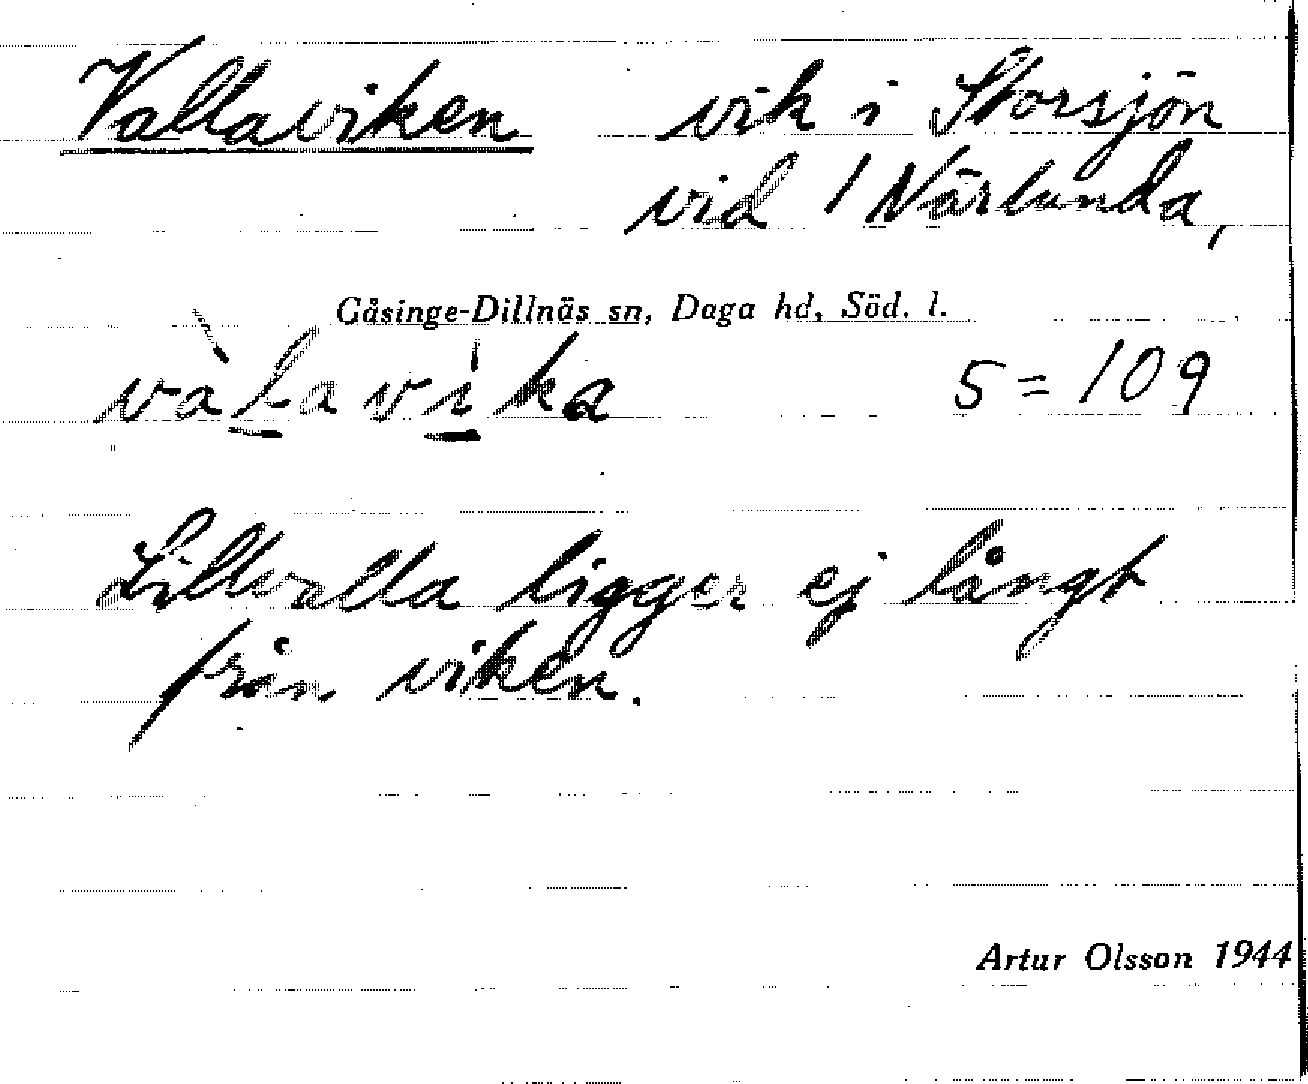 Vallaviken vik i Storsjön
vid 1 Närlunda,
Gåsinge-Dillnäs sn, Daga hd, Söd. l.
vàlavìka 5 = 109
Lillvalla ligger ej långt
från viken.
Artur Olsson 1944